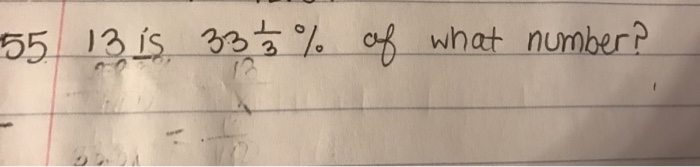 55 13 is 33 1/3 % of what number?